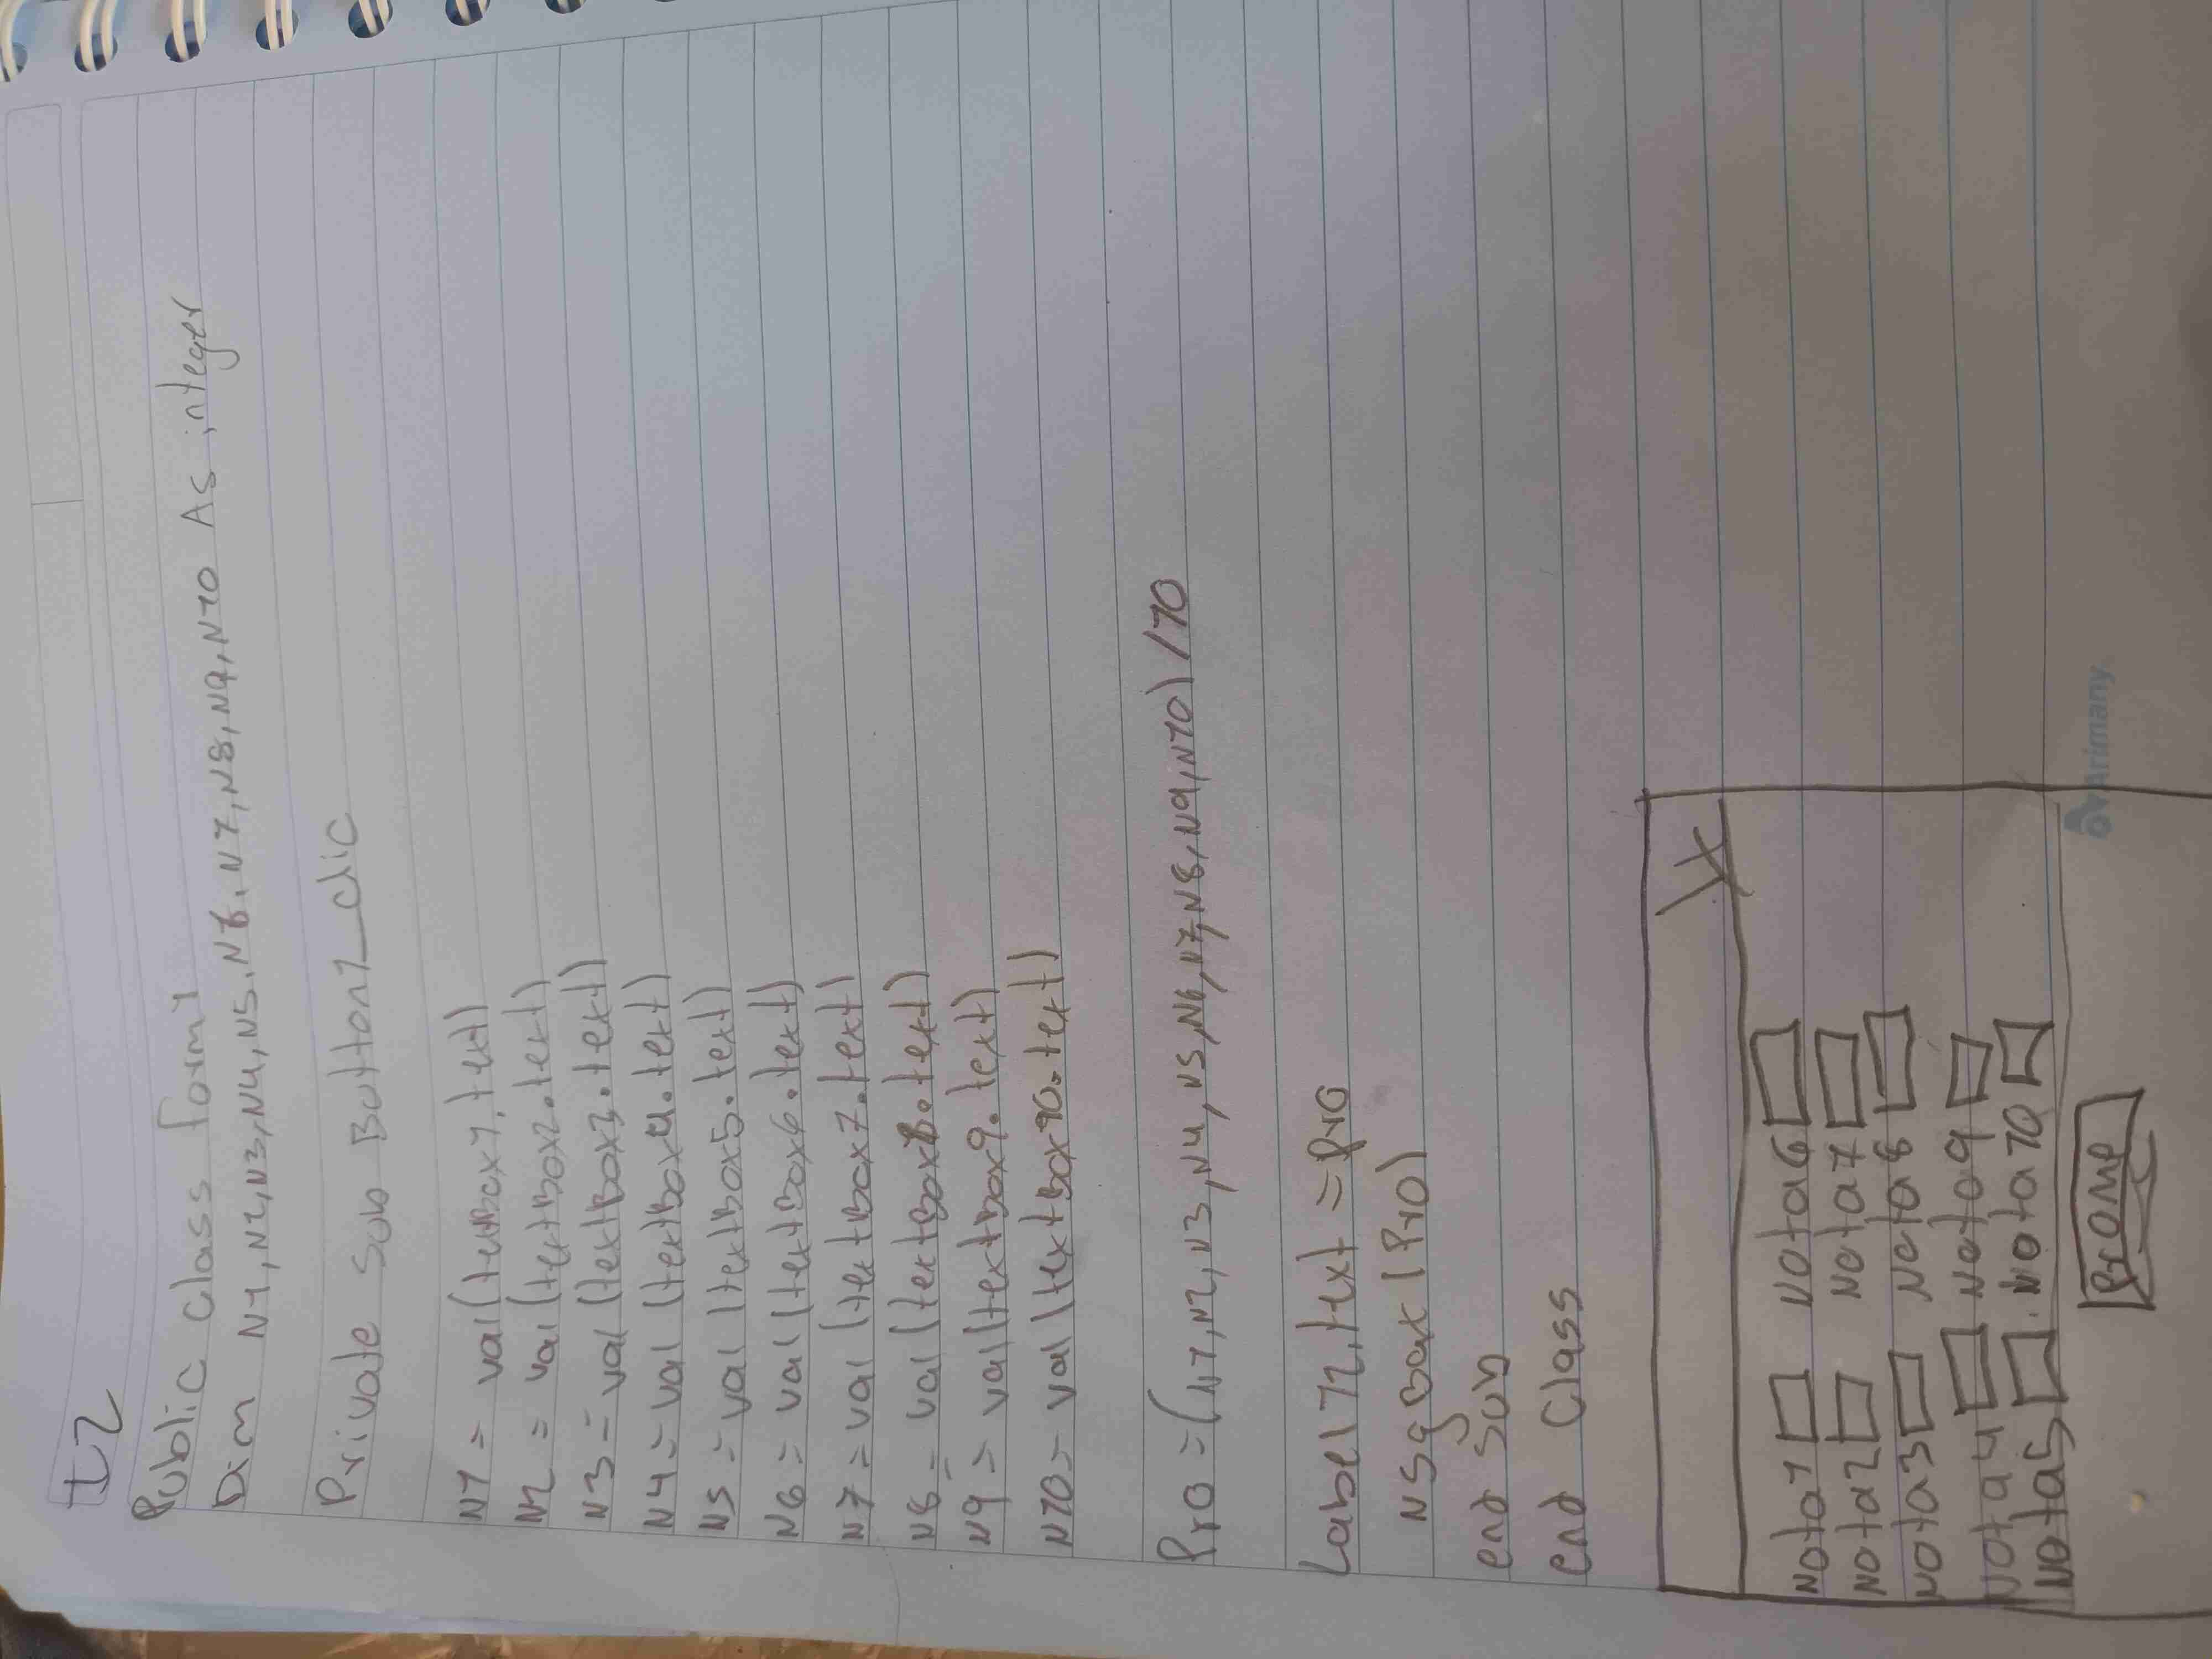 L2
Public class form1
Dim N1,N2,N3,N4,N5,N6,N7,N8,N9,N10 As integer
Private Sub Button1_clic
N1 = val(textBox1.text)
N2 = val(textBox2.text)
N3 = val(textBox3.text)
N4 = val(textBox4.text)
N5 = val(textBox5.text)
N6 = val(textBox6.text)
N7 = val(textBox7.text)
N8 = val(textBox8.text)
N9 = val(textBox9.text)
N10 = val(textBox10.text)
Pro = (N1,N2,N3,N4,N5,N6,N7,N8,N9,N10)/10
Label12.text = Pro
MsgBox(Pro)
end Sub
end Class
X
Nota1 Nota6
Nota2 Nota7
Nota3 Nota8
Nota4 Nota9
Nota5 Nota10
Prome
Arimany